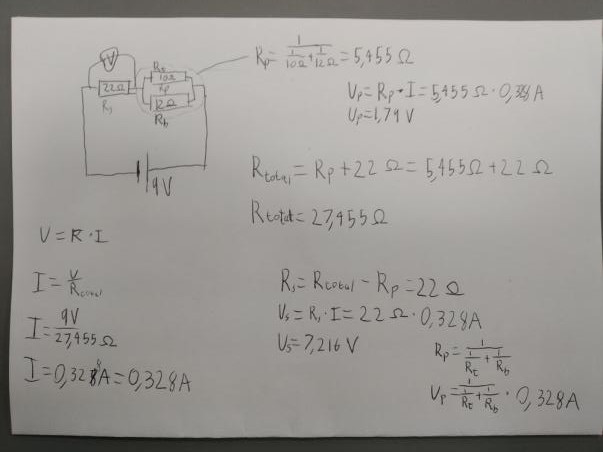 V
22Ω
R₁
Rₜ
10Ω
Rp
12Ω
R_b
9V
Rp = 1/(1/10Ω + 1/12Ω) = 5,455 Ω
Vp = Rp · I = 5,455 Ω · 0,328 A
Vp = 1,79 V
R_total = Rp + 22 Ω = 5,455Ω + 22 Ω
R_total = 27,455 Ω
V = R · I
I = V/R_total
I = 9V/27,455 Ω
I = 0,328A = 0,328A
Rₛ = R_total - Rp = 22 Ω
Uₛ = Rₛ · I = 22 Ω · 0,328A
Uₛ = 7,216 V
Rp = 1/(1/Rₜ + 1/R_b)
Vp = 1/(1/Rₜ + 1/R_b) · 0,328A